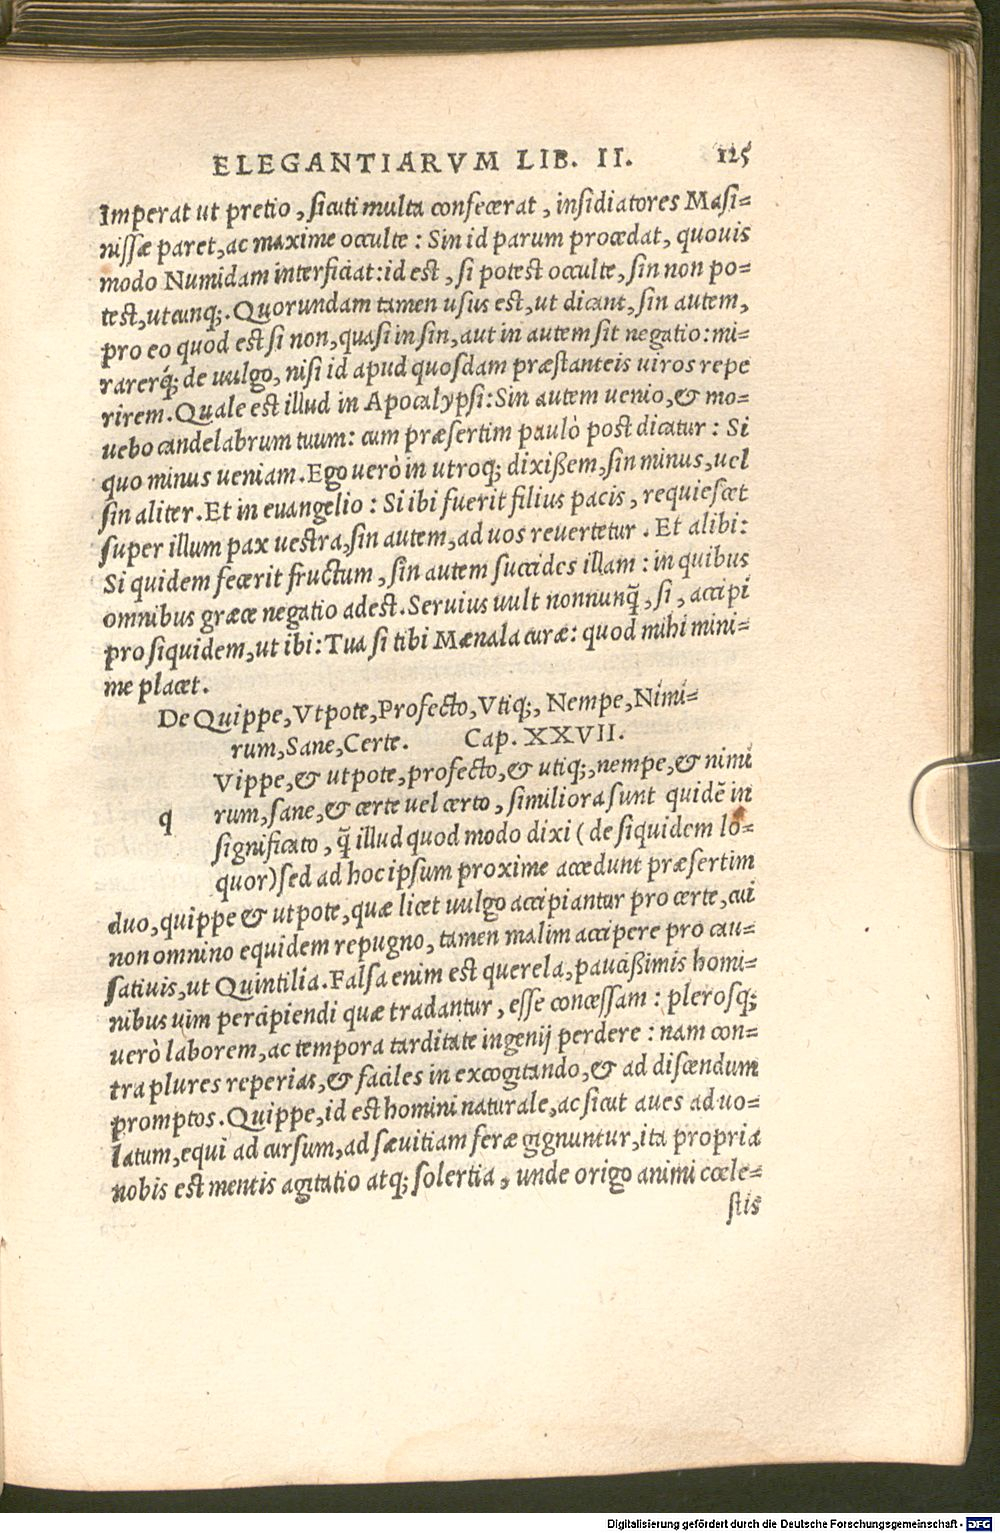 ELEGANTIARVM LIB. II. 125
Imperat ut pretio, sicuti multa confecerat, insidiatores Masi=
nissæ paret, ac maxime occulte: Sin id parum procedat, quouis
modo Numidam interficiat: id est, si potest occulte, sin non po=
test, utcunq;. Quorundam tamen usus est, ut dicant, sin autem,
pro eo quod est si non, quasi in sin, aut in autem sit negatio: mi=
rarerq́; de uulgo, nisi id apud quosdam præstanteis uiros repe
rirem. Quale est illud in Apocalypsi: Sin autem uenio, & mo=
uebo candelabrum tuum: cum præsertim paulò post dicatur: Si
quo minus ueniam. Ego uerò in utroq; dixißem, sin minus, uel
sin aliter. Et in euangelio: Si ibi fuerit filius pacis, requiescet
super illum pax uestra, sin autem, ad uos reuertetur. Et alibi:
Si quidem fecerit fructum, sin autem succides illam: in quibus
omnibus græce negatio adest. Seruius uult nonnunq̃, si, accipi
pro siquidem, ut ibi: Tua si tibi Mænala curæ: quod mihi mini=
me placet.
De Quippe, Vtpote, Profecto, Vtiq;, Nempe, Nimi=
rum, Sane, Certe. Cap. XXVII.
Vippe, & utpote, profecto, & utiq;, nempe, & nimi
q rum, sane, & certe uel certo, similiora sunt quidē in
significato, q̃ illud quod modo dixi (de siquidem lo=
quor) sed ad hoc ipsum proxime accedunt præsertim
duo, quippe & utpote, quæ licet uulgo accipiantur pro certe, cui
non omnino equidem repugno, tamen malim accipere pro cau=
satiuis, ut Quintilia. Falsa enim est querela, paucißimis homi=
nibus uim percipiendi quæ tradantur, esse concessam: plerosq;
uerò laborem, ac tempora tarditate ingenij perdere: nam con=
tra plures reperias, & faciles in excogitando, & ad discendum
promptos. Quippe, id est homini naturale, ac sicut aues ad uo=
latum, equi ad cursum, ad sæuitiam feræ gignuntur, ita propria
nobis est mentis agitatio atq; solertia, unde origo animi cœle=
stis
Digitalisierung gefördert durch die Deutsche Forschungsgemeinschaft - DFG